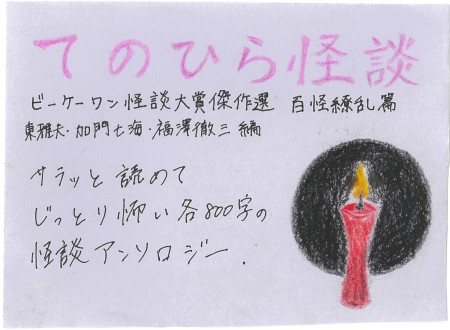 てのひら怪談
ビーケーワン怪談大賞傑作選 百怪繚乱篇
東雅夫・加門七海・福澤徹三 編
サラッと読めて
じっとり怖い各800字の
怪談アンソロジー.